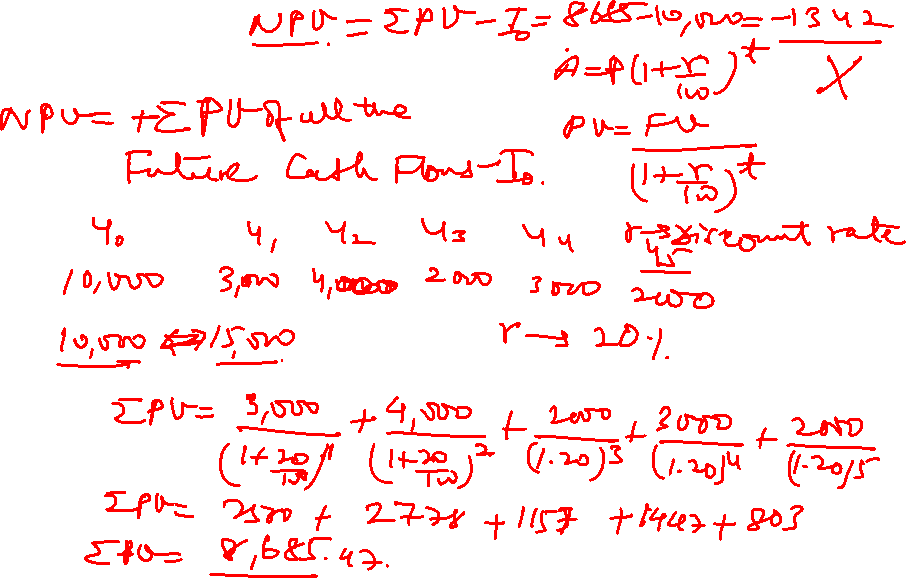 NPV = ΣPV - I₀ = 8685-10,000 = -1342
A = P(1+r/100)^t X
NPV = +Σ PV of all the
Future Cash Flows - I₀.
PV = FV/(1+r/100)^t
Y₀ Y₁ Y₂ Y₃ Y₄ r→discount rate
Y5
10,000 3,000 4,000 2000 3000 2000
10,000 ⇔ 15,000 r → 20%
ΣPV = 3,000/(1+20/100)^1 + 4,000/(1+20/100)^2 + 2000/(1.20)^3 + 3000/(1.20)^4 + 2000/(1.20)^5
ΣPV = 2500 + 2778 + 1157 + 1447 + 803
ΣPV = 8,685.47.